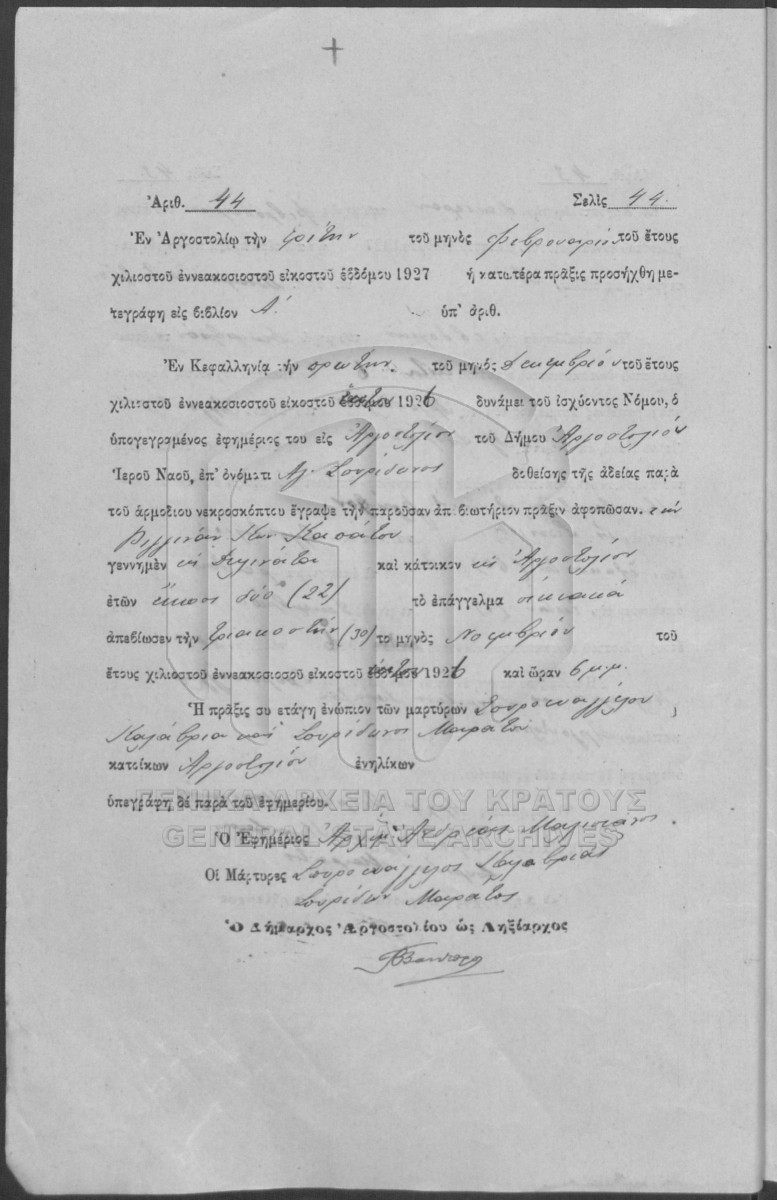 Ἀριθ. 44 Σελὶς 44.
Ἐν Ἀργοστολίῳ τὴν τρίτην τοῦ μηνὸς Φεβρουαρίου τοῦ ἔτους
χιλιοστοῦ ἐννεακοσιοστοῦ εἰκοστοῦ ἑβδόμου 1927 ἡ κατωτέρα πρᾶξις προσήχθη με-
τεγράφη εἰς βιβλίον Α΄. ὑπ' ἀριθ.
Ἐν Κεφαλληνίᾳ τὴν πρώτην. τοῦ μηνὸς Δεκεμβρίου τοῦ ἔτους
χιλιοστοῦ ἐννεακοσιοστοῦ εἰκοστοῦ ἕκτου 1926 δυνάμει τοῦ ἰσχύοντος Νόμου, ὁ
ὑπογεγραμένος ἐφημέριος του εἰς Ἀργοστόλιον τοῦ Δήμου Ἀργοστολίου
Ἱεροῦ Ναοῦ, ἐπ' ὀνόματι Ἁγ. Σπυρίδωνος δοθείσης τῆς ἀδείας παρὰ
τοῦ ἁρμοδίου νεκροσκόπτου ἔγραψε τὴν παροῦσαν ἀποβιωτήριον πρᾶξιν ἀφοπῶσαν. τὴν
Κων
γεννημὲν εἰς Δειλινάτα καὶ κάτοικον εἰς Ἀργοστόλιον
ἐτῶν εἴκοσι δύο (22) τὸ ἐπάγγελμα οἰκιακά
ἀπεβίωσεν τὴν τριακοστὴν (30) το μηνὸς Νοεμβρίου τοῦ
ἔτους χιλιοστοῦ ἐννεακοσιοσοῦ εἰκοστοῦ ἕκτου 1926 καὶ ὥραν 6 μ.μ.
Ἡ πρᾶξις συ ετάγη ἐνώπιον τῶν μαρτύρων Σπυροευαγγέλου
Καλαβρία καὶ Σπυρίδωνος Μαράτου
κατοίκων Ἀργοστολίου ἐνηλίκων
ὑπεγράφη δὲ παρὰ τοῦ ἐφημερίου.
ΓΕΝΙΚΑ ΑΡΧΕΙΑ ΤΟΥ ΚΡΑΤΟΥΣ
GENERAL STATE ARCHIVES
Ὁ Ἐφημέριος Ἀρχιμ.
Οἱ Μάρτυρες Σπυροευάγγελος Καλαβρίας
Σπυρίδων Μαράτος
Ὁ Δήμαρχος Ἀργοστολίου ὡς Ληξίαρχος